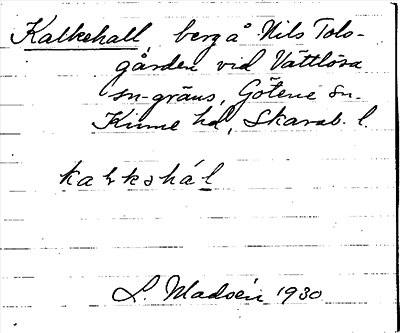 Kalkehall, berg å Nils Tols-
gården vid Vättlösa
sn-gräns, Götene sn
Kinne hd, Skarab. l.
kalkəhál
L.                1930